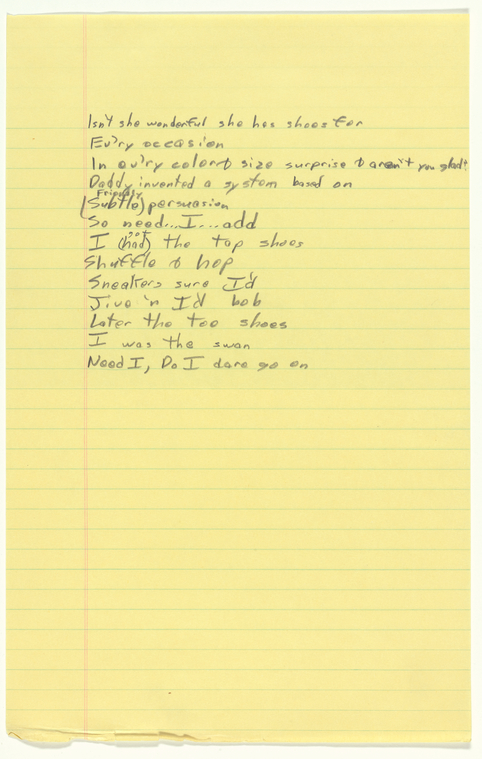 Isn't she wonderful she has shoes for
Ev'ry occasion
In ev'ry color & size surprise & aren't you glad?
Daddy invented a system based on
Friendly
(Subtle) persuasion
So need...I...add
I (had) the tap shoes
Shuffle & hop
Sneakers sure I'd
Jive 'n I'd bob
Later the toe shoes
I was the swan
Need I, Do I dare go on